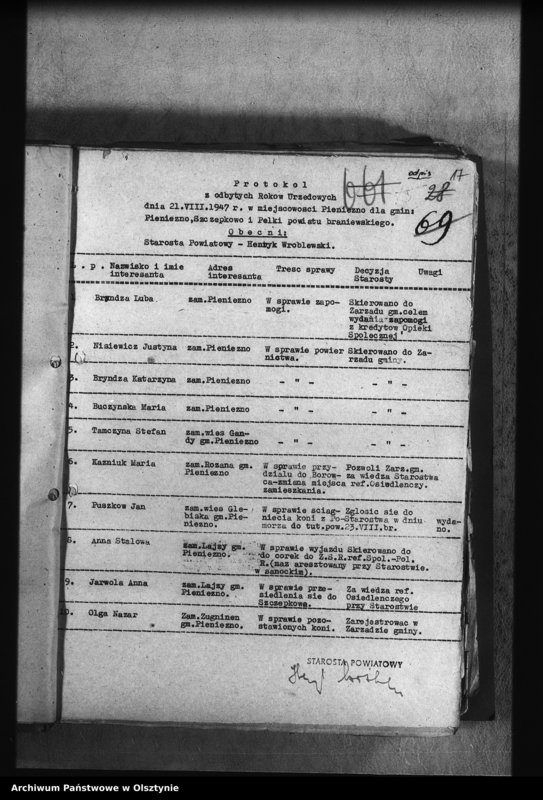 odpis 17
P r o t o k o l
z odbytych Rokow Urzedowych
28
dnia 21.VIII.1947 r. w miejscowosci Pieniezno dla gmin:
Pieniezno,Szczepkowo i Pelki powiatu braniewskiego.
69
O b e c n i :
Starosta Powiatowy - Henryk Wroblewski.
L . p . Nazwisko i imie Adres Tresc sprawy Decyzja Uwagi
interesanta interesanta Starosty
Bryndza Luba zam.Pieniezno W sprawie zapo- Skierowano do
mogi. Zarzadu gm.celem
wydania zapomogi
z kredytow Opieki
Spolecznej
2. Nisiewicz Justyna zam.Pieniezno W sprawie powier Skierowano do Za-
nietwa. rzadu gminy.
3. Bryndza Katarzyna zam.Pieniezno - " - - " -
4. Buczynska Maria zam.Pieniezno - " - - " -
5. Tamczyna Stefan zam.wies Gan-
dy gm.Pieniezno - " - - " -
6. Kazniuk Maria zam.Rozana gm. W sprawie przy- Pozwoli Zarz.gm.
Pieniezno dzialu do Borow- za wiedza Starostwa
ca-zmiana miejsca ref.Osiedlenczy.
zamieszkania.
7. Puszkow Jan zam.wies Gle- W sprawie sciag- Zglosic sie do
biska gm.Pie- niecia koni z Po- Starostwa w dniu wyda-
niezno. morza do tut.pow. 23.VIII.br. no.
8. Anna Stalowa zam.Lajzy gm. W sprawie wyjazdu Skierowano do
Pieniezno. do corek do Z.S.R. ref.Spol.-Pol.
R.(maz aresztowany przy Starostwie.
w sanockim).
9. Jarwola Anna zam.Lajzy gm. W sprawie prze- Za wiedza ref.
Pieniezno. siedlenia sie do Osiedlenczego
Szczepkowa. przy Starostwie
10. Olga Nazar Zam.Zugninen W sprawie pozo- Zarejestrowac w
gm.Pieniezno. stawionych koni. Zarzadzie gminy.
STAROSTA POWIATOWY
Archiwum Państwowe w Olsztynie